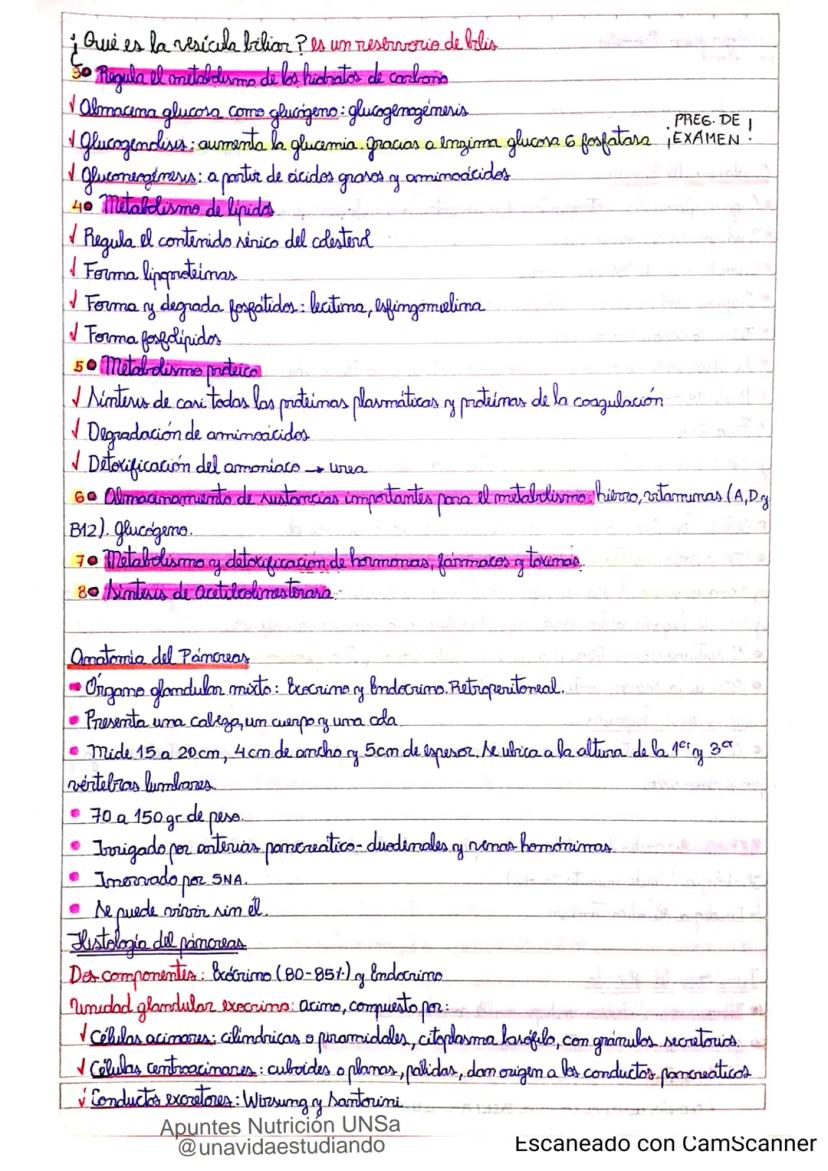 ¿Qué es la vesícula biliar? es un reservorio de bilis
3• Regula el metabolismo de los hidratos de carbono
✓ Almacena glucosa como glucógeno: glucogenogénesis
✓ Glucogenolisis: aumenta la glucemia gracias a enzima glucosa 6 fosfatasa ¡PREG. DE EXAMEN!
✓ Gluconeogénesis: a partir de ácidos grasos y aminoácidos
4• Metabolismo de lípidos
✓ Regula el contenido sérico del colesterol
✓ Forma lipoproteínas
✓ Forma y degrada fosfátidos: lecitina, esfingomielina
✓ Forma fosfolípidos
5• Metabolismo proteico
✓ Síntesis de casi todas las proteínas plasmáticas y proteínas de la coagulación
✓ Degradación de aminoácidos
✓ Detoxificación del amoníaco → urea
6• Almacenamiento de sustancias importantes para el metabolismo: hierro, vitaminas (A, D y
B12). Glucógeno.
7• Metabolismo y detoxificación de hormonas, fármacos y toxinas.
8• Síntesis de acetilcolinesterasa.
Anatomía del Páncreas
• Órgano glandular mixto: Exocrino y Endocrino. Retroperitoneal.
• Presenta una cabeza, un cuerpo y una cola
• Mide 15 a 20cm, 4cm de ancho y 5cm de espesor. Se ubica a la altura de la 1er y 3er
vértebras lumbares
• 70 a 150 gr de peso.
• Irrigado por arterias pancreático-duodenales y venas homónimas
• Inervado por SNA.
• Se puede vivir sin él.
Histología del páncreas
Dos componentes: Exócrino (80-85%) y Endocrino
Unidad glandular exocrina: acino, compuesto por:
✓ Células acinares: cilíndricas o piramidales, citoplasma basófilo, con gránulos secretorios.
✓ Células centroacinares: cuboides o planas, pálidas, dan origen a los conductos pancreáticos
✓ Conductos excretores: Wirsung y Santorini
Apuntes Nutrición UNSa
@unavidaestudiando
Escaneado con CamScanner